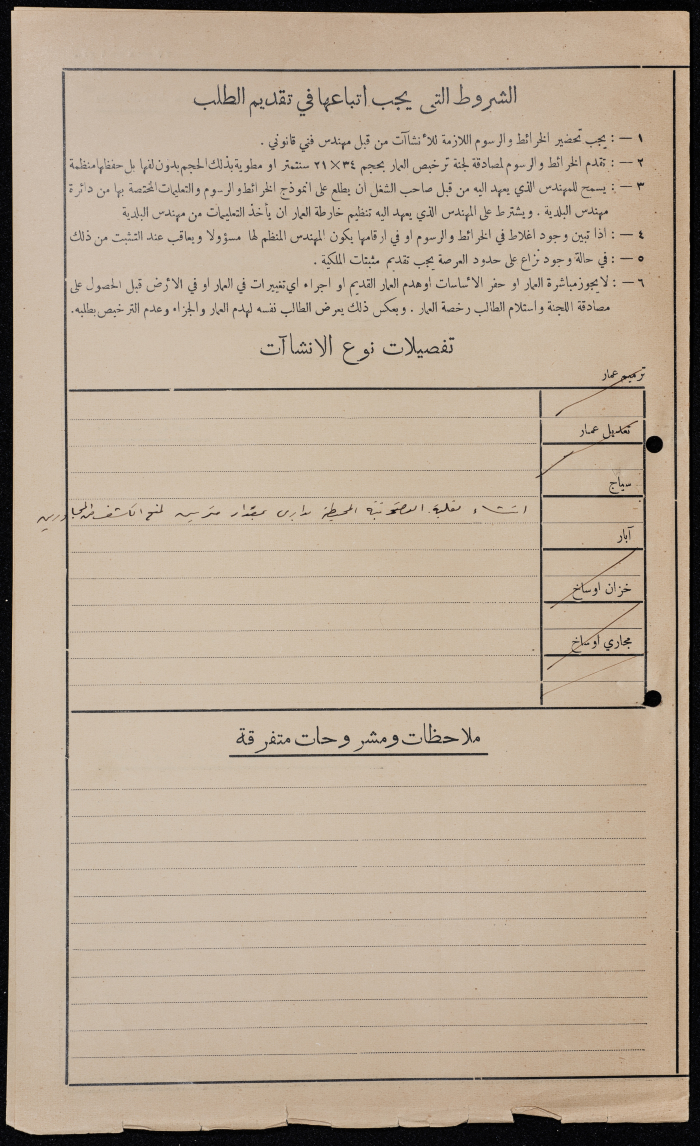 الشروط التي يجب اتباعها في تقديم الطلب
١ — : يجب تحضير الخرائط والرسوم اللازمة للأنشاآت من قبل مهندس فني قانوني .
٢ — : تقدم الخرائط والرسوم لمصادقة لجنة ترخيص العمار بحجم ٣٤×٢١ سنتمتر او مطوية بذلك الحجم بدون لفها بل حفظها منظمة
٣ — : يسمح للمهندس الذي يعهد اليه من قبل صاحب الشغل ان يطلع على انموذج الخرائط والرسوم والتعليمات المختصة بها من دائرة
مهندس البلدية . ويشترط على المهندس الذي يعهد اليه تنظيم خارطة العمار ان يأخذ التعليمات من مهندس البلدية
٤ — : اذا تبين وجود اغلاط في الخرائط والرسوم او في ارقامها يكون المهندس المنظم لها مسؤولا ويعاقب عند التثبت من ذلك
٥ — : في حالة وجود نزاع على حدود العرصة يجب تقديم مثبتات الملكية .
٦ — : لايجوز مباشرة العمار او حفر الاساسات او هدم العمار القديم او اجراء اي تغييرات في العمار او في الأرض قبل الحصول على
مصادقة اللجنة واستلام الطالب رخصة العمار . وبعكس ذلك يعرض الطالب نفسه لهدم العمار والجزاء وعدم الترخيص بطلبه.
تفصيلات نوع الانشاآت
ترميم عمار
تعديل عمار
سياج
انشاء المحيطة بداري بمقدار مترين لمنع الكشف من المجاورين
آبار
خزان اوساخ
مجاري اوساخ
ملاحظات ومشروحات متفرقة